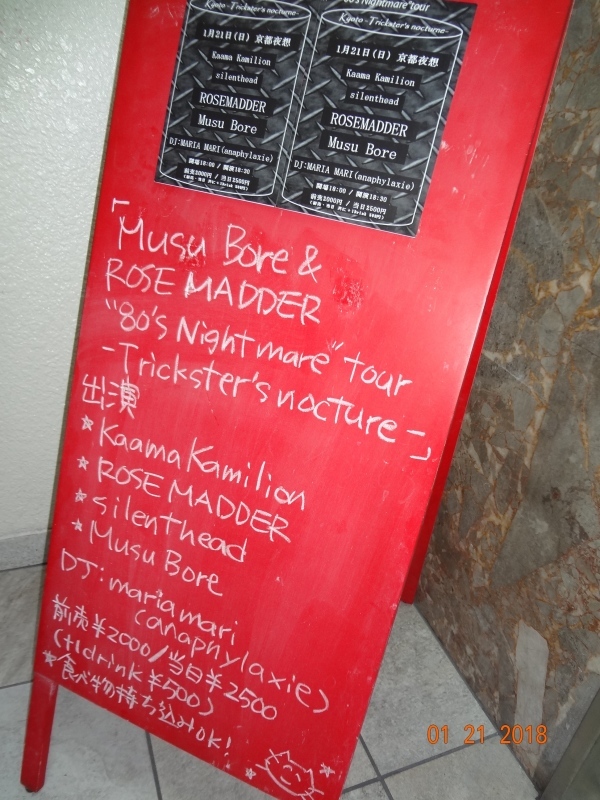 80's Nightmare tour
Kyoto -Trickster's nocturne-
1月21日(日) 京都夜想
Kaama Kamilion
silenthead
ROSEMADDER
Musu Bore
DJ:MARIA MARI(anaphylaxie)
開場18:00 / 開演18:30
前売2000円 / 当日2500円
Kyoto -Trickster's nocturne-
1月21日(日) 京都夜想
Kaama Kamilion
silenthead
ROSEMADDER
Musu Bore
DJ:MARIA MARI(anaphylaxie)
開場18:00 / 開演18:30
前売2000円 / 当日2500円
「Musu Bore &
ROSE MADDER
"80's Nightmare" tour
-Trickster's nocture-」
出演
☆Kaama Kamilion
☆ROSE MADDER
☆silenthead
☆Musu Bore
DJ:mariamari
(anaphylaxie)
前売¥2000/当日¥2500
(+1drink ¥500)
☆食べ物持ち込みOK!
01 21 2018